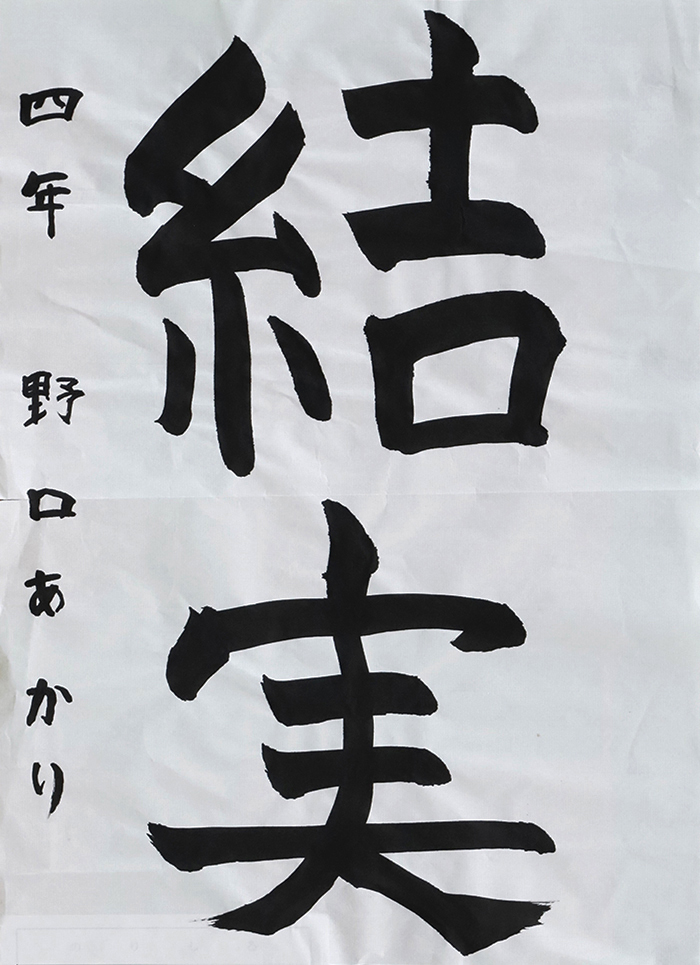 結実
四年 野口あかり